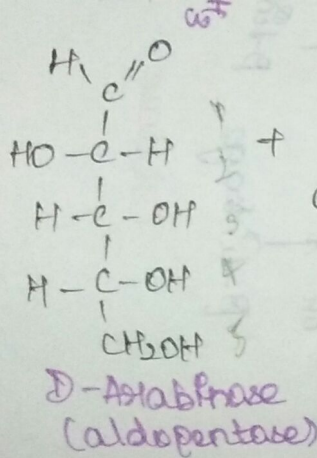 H O
C
HO - C - H 1 +
H - C - OH 3
H - C - OH 4
CH2OH 5
D-Arabinose
(aldopentose)